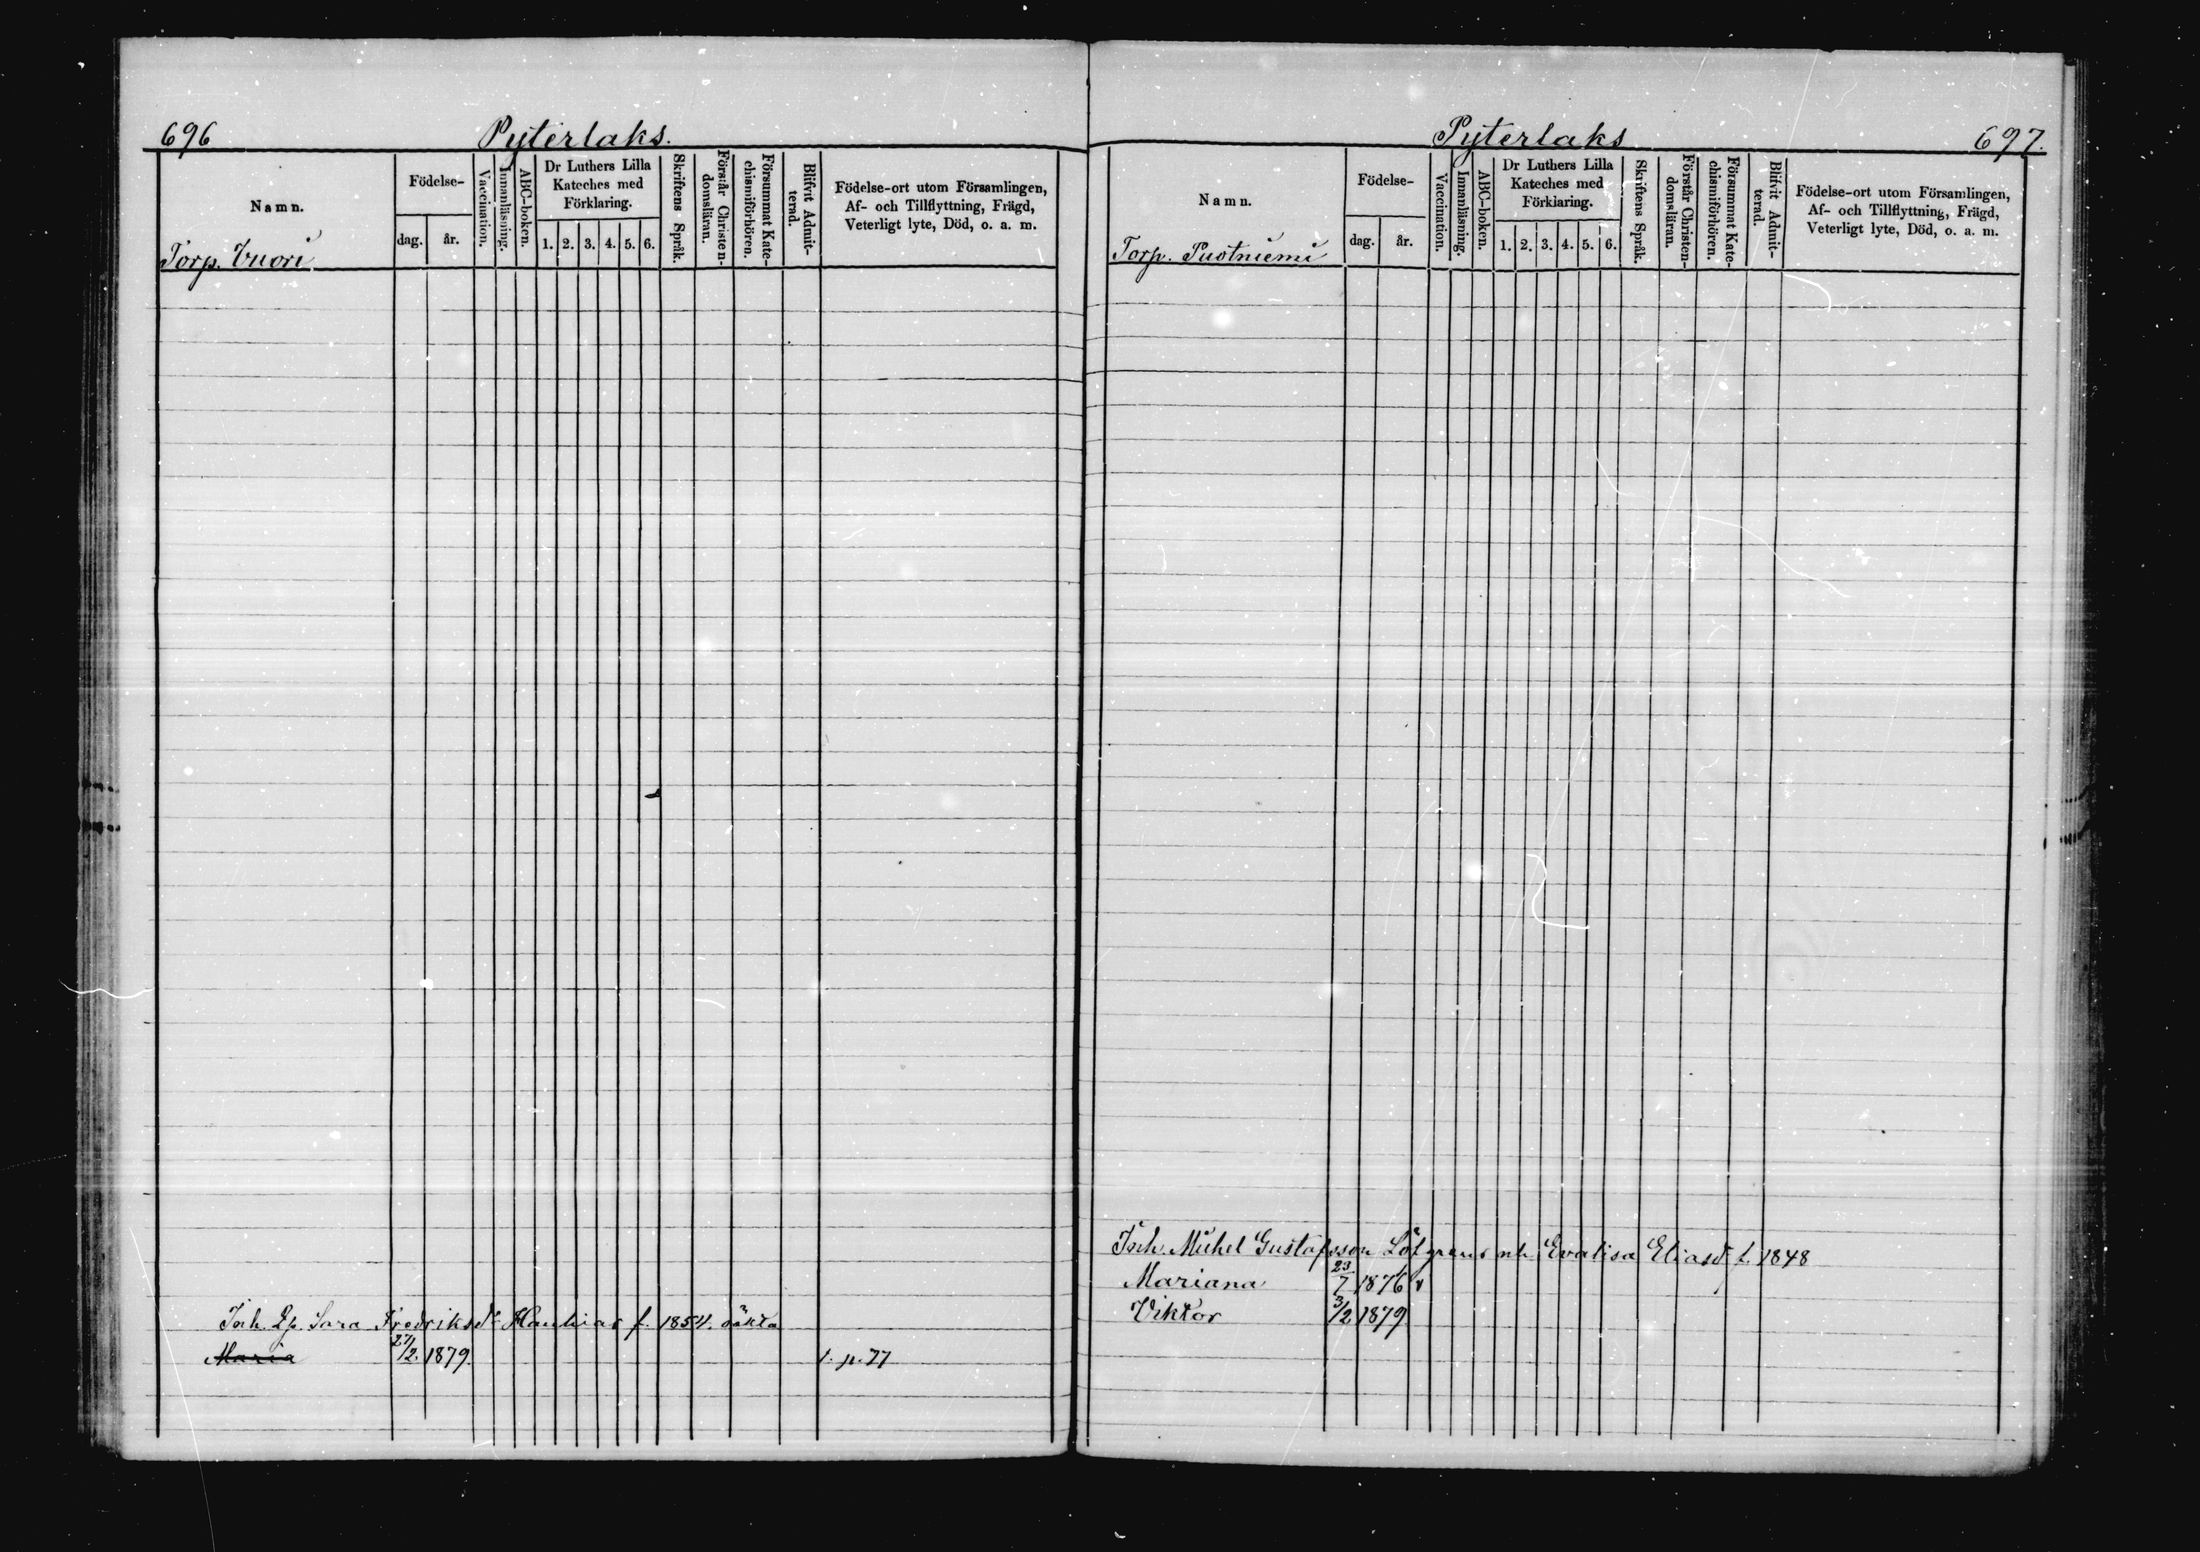 696 Pyterlaks.
Namn.
Födelse-
dag. år.
Vaccination.
Innanläsning.
ABC-boken.
Dr Luthers Lilla
Kateches med
Förklaring.
1. 2. 3. 4. 5. 6.
Skriftens Språk.
Förstår Christen-
domsläran.
Försummat Kate-
chismiförhören.
Blifvit Admit-
terad.
Födelse-ort utom Församlingen,
Af- och Tillflyttning, Frägd,
Veterligt lyte, Död, o. a. m.
Torp. Vuori
Inh. Ep. Sara Fredriksdr f. 1854. oäkta
Maria 27/2. 1879. t. p. 77
Pyterlaks 697.
Namn.
Födelse-
dag. år.
Vaccination.
Innanläsning.
ABC-boken.
Dr Luthers Lilla
Kateches med
Förklaring.
1. 2. 3. 4. 5. 6.
Skriftens Språk.
Förstår Christen-
domsläran.
Försummat Kate-
chismiförhören.
Blifvit Admit-
terad.
Födelse-ort utom Församlingen,
Af- och Tillflyttning, Frägd,
Veterligt lyte, Död, o. a. m.
Torp. Puotniemi
Inh. Mickel Gustafsson Löfgrens Evalisa Eliasdr f. 1848
Mariana 23/7 1876 v
Viktor 3/2 1879